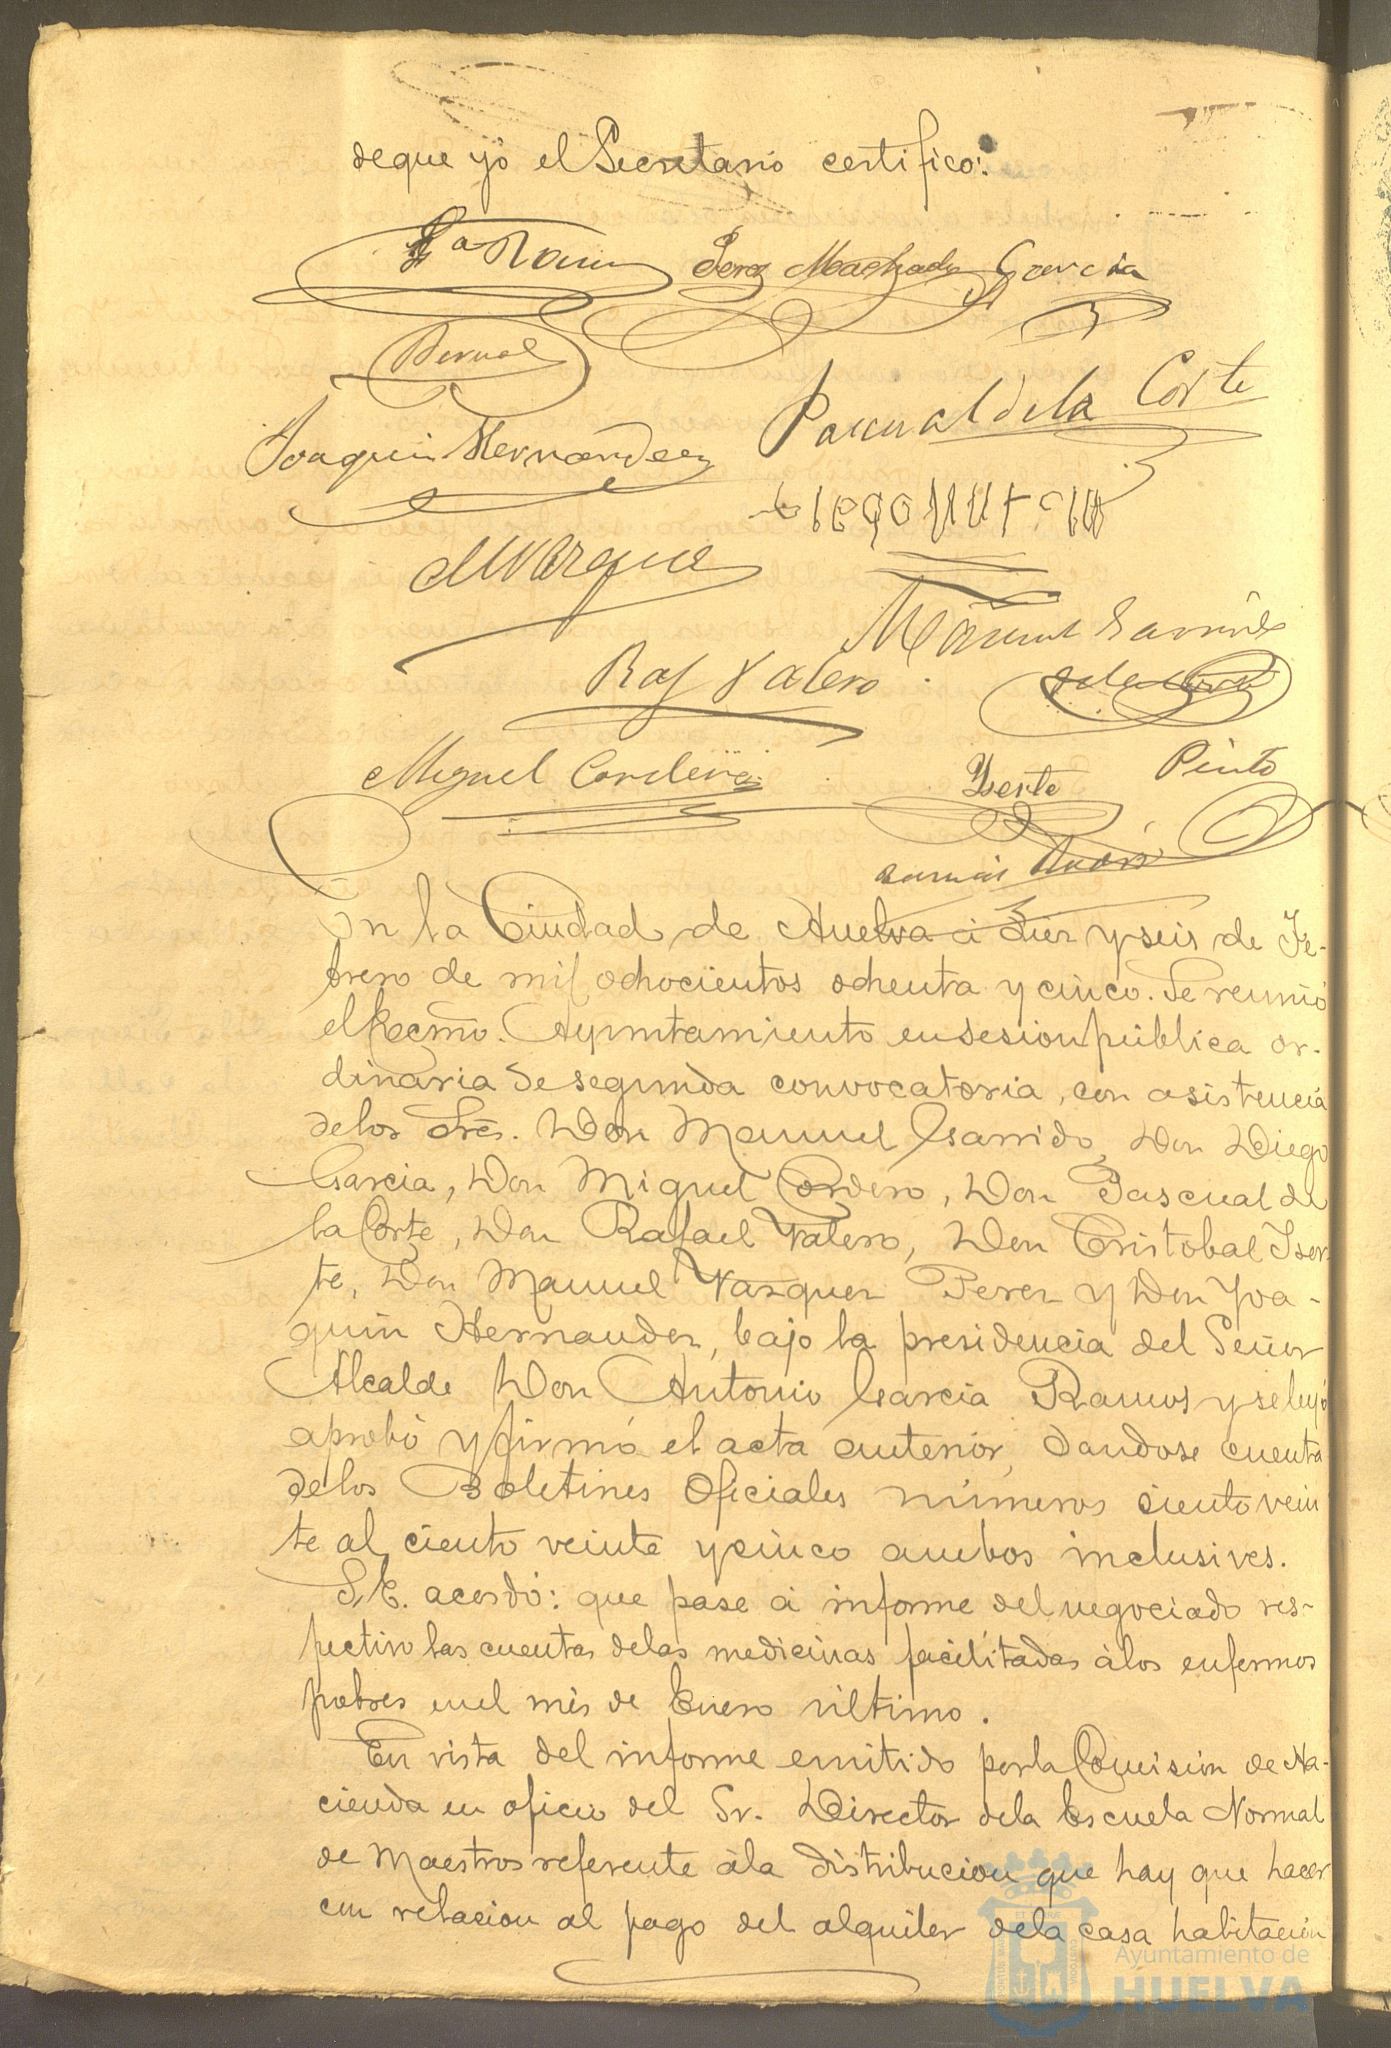 de que yó el Secretario certifico:
Ga Ramos Perez Machado García
Bernal
Pascual de la Corte
Joaquin Hernandez
MVazquez
Manuel Garrido
Raf Valero
Miguel Cordero
Yserte
Pinto
En la Ciudad de Huelva á diez y seis de Fe-
brero de mil ochocientos ochenta y cinco. Se reunió
el Excmo. Ayuntamiento en sesion pública or-
dinaria de segunda convocatoria, con asistencia
de los Sres. Don Manuel Garrido, Don Diego
Garcia, Don Miguel Cordero, Don Pascual de
la Corte, Don Rafael Valero, Don Cristobal Iser-
te, Don Manuel Vazquez Perez y Don Joa-
quin Hernandez, bajo la presidencia del Señor
Alcalde Don Antonio Garcia Ramos y se leyó
aprobó y firmó el acta anterior, dandose cuenta
de los Boletines Oficiales números ciento vein
te al ciento veinte y cinco ambos inclusives.
S.E. acordó: que pase á informe del negociado res-
pectivo las cuentas de las medicinas facilitadas á los enfermos
pobres en el més de Enero último.
En vista del informe emitido por la Comisión de Ha-
cienda en oficio del Sr. Director de la Escuela Normal
de Maestros referente á la distribucion que hay que hacer
con relacion al pago del alquiler de la casa habitación
Ayuntamiento de
HUELVA